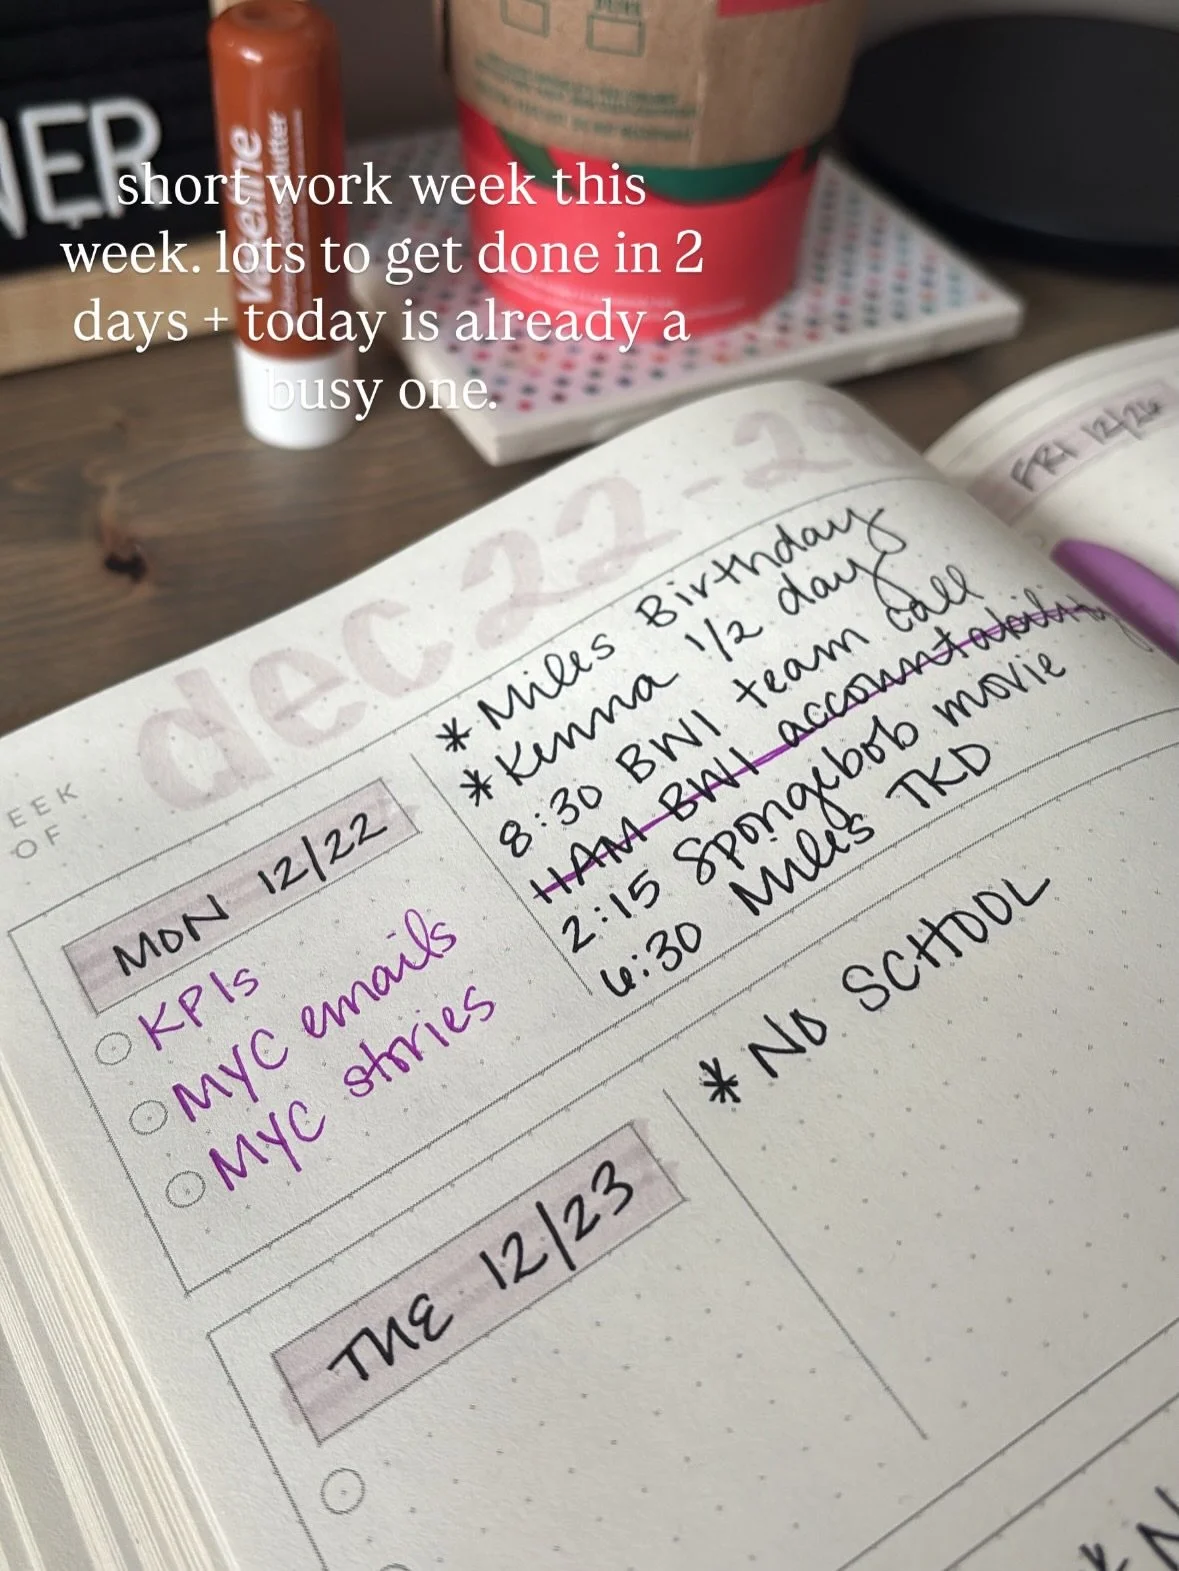 NER
Vaseline
short work week this
week. lots to get done in 2
days + today is already a
busy one.
dec 22 - 28
FRI 12/26
EEK
OF
MON 12/22
KPIs
MYC emails
MYC stories
* Miles Birthday
* Kenna 1/2 day
8:30 BWI team call
11AM BWI accountability
2:15 Spongebob movie
6:30 Miles TKD
TUE 12/23
* NO SCHOOL